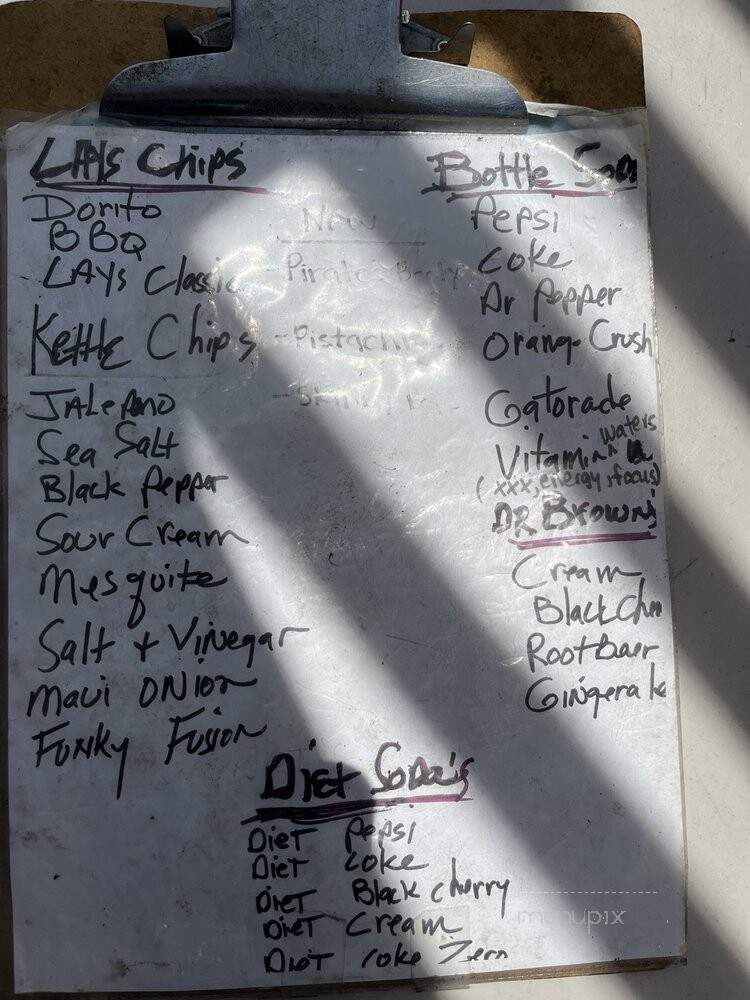 LAYS Chips
Dorito
BBQ
LAYS Classic
Kettle Chips
JALePeno
Sea Salt
Black Pepper
Sour Cream
Mesquite
Salt + Vinegar
Maui ONION
Funky Fusion
New
- Pirate Booty
- Pistachio
Bottle Soda
Pepsi
Coke
Dr Pepper
Orange Crush
Gatorade
Vitamin waters
(xxx, energy, focus)
DR BROWN'S
Cream
Black Cher
RootBeer
Gingerale
Diet Soda's
DieT Pepsi
DieT Coke
DieT Black cherry
DieT Cream
DieT Coke Zero
menupix